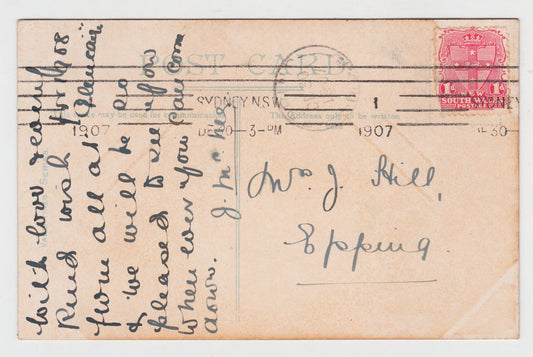 POST CARD
SYDNEY N.S.W
1907 DE 30 3-PM 1907 DE 30
may be used for communication
The Address only to be written
1d N.S.W. 1d
SOUTH WALES
POSTAGE
With love & every
kind wish for 1908
from all at
& we will be so
pleased to see you
when ever you can come
down.
J. Mc
Mrs J. Hill,
Epping.